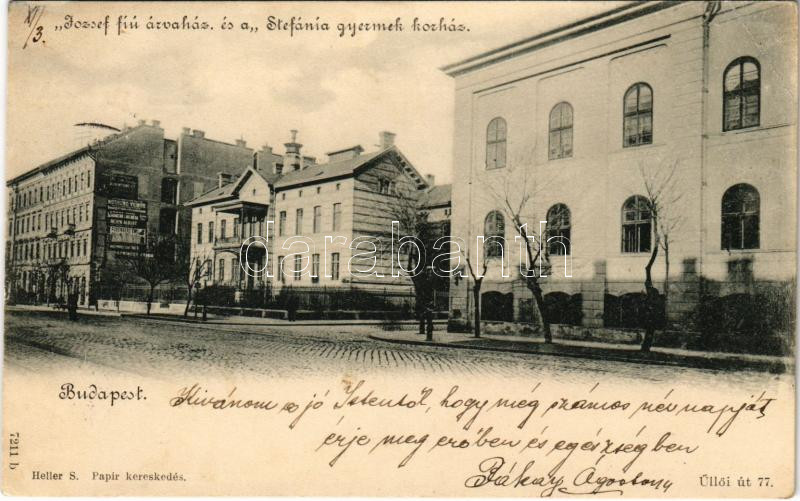 XI/3.
„József fiú árvaház. és a„ Stefánia gyermek korház.
darabanth
Budapest.
Kivánom a jó Istentől, hogy még számos név napját
érje meg erőben és egészségben
Bákay Ágostony
7211 b
Heller S. Papir kereskedés.
Üllői út 77.